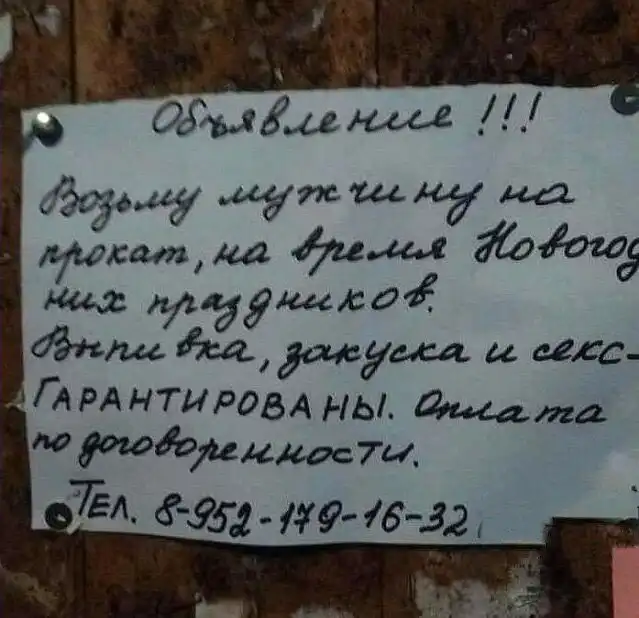 Объявление !!!
Возьму мужчину на
прокат, на время Новогод
них праздников.
Выпивка, закуска и секс-
ГАРАНТИРОВАНЫ. Оплата
по договоренности.
Тел. 8-952-179-16-32